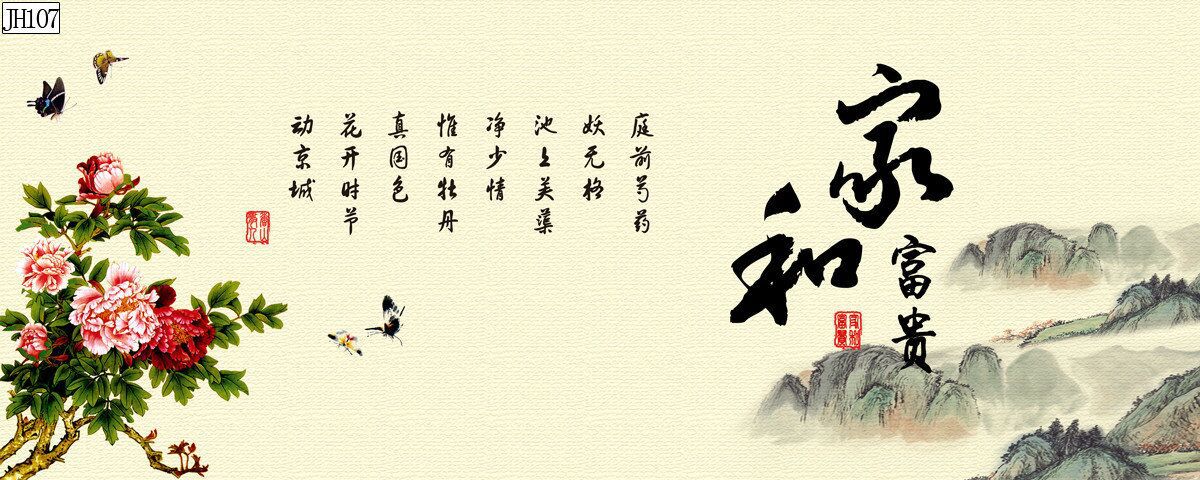 JH107
家和
富贵
庭前芍药
妖无格
池上芙蕖
净少情
惟有牡丹
真国色
花开时节
动京城